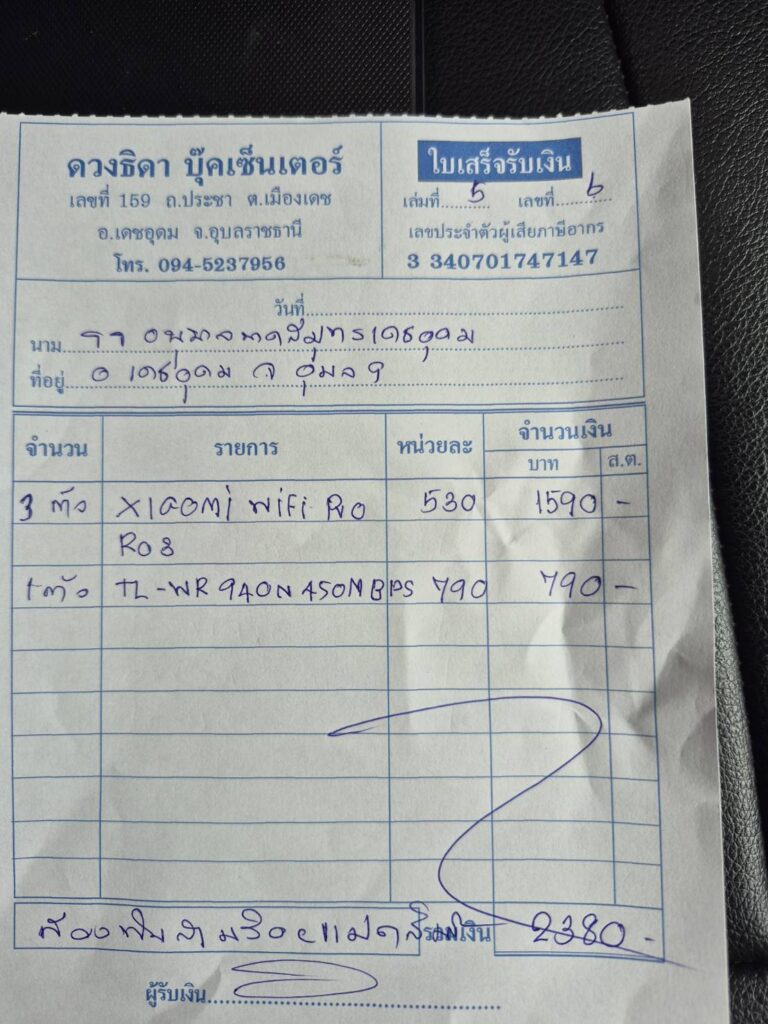 ดวงธิดา บุ๊คเซ็นเตอร์
เลขที่ 159 ถ.ประชา ต.เมืองเดช
อ.เดชอุดม จ.อุบลราชธานี
โทร. 094-5237956
ใบเสร็จรับเงิน
เล่มที่ 5 เลขที่ 6
เลขประจำตัวผู้เสียภาษีอากร
3 340701747147
วันที่
นาม รร อนุบาลหาดสมุทรเดชอุดม
ที่อยู่ อ เดชอุดม จ อุบล ฯ
จำนวน รายการ หน่วยละ จำนวนเงิน
บาท ส.ต.
3 ตัว XIAOMI WiFi Pro 530 1590 -
R03
1 ตัว TL-WR 940N 450MBPS 790 790 -
สองพันสามร้อยแปดสิบ รวมเงิน 2380 -
ผู้รับเงิน